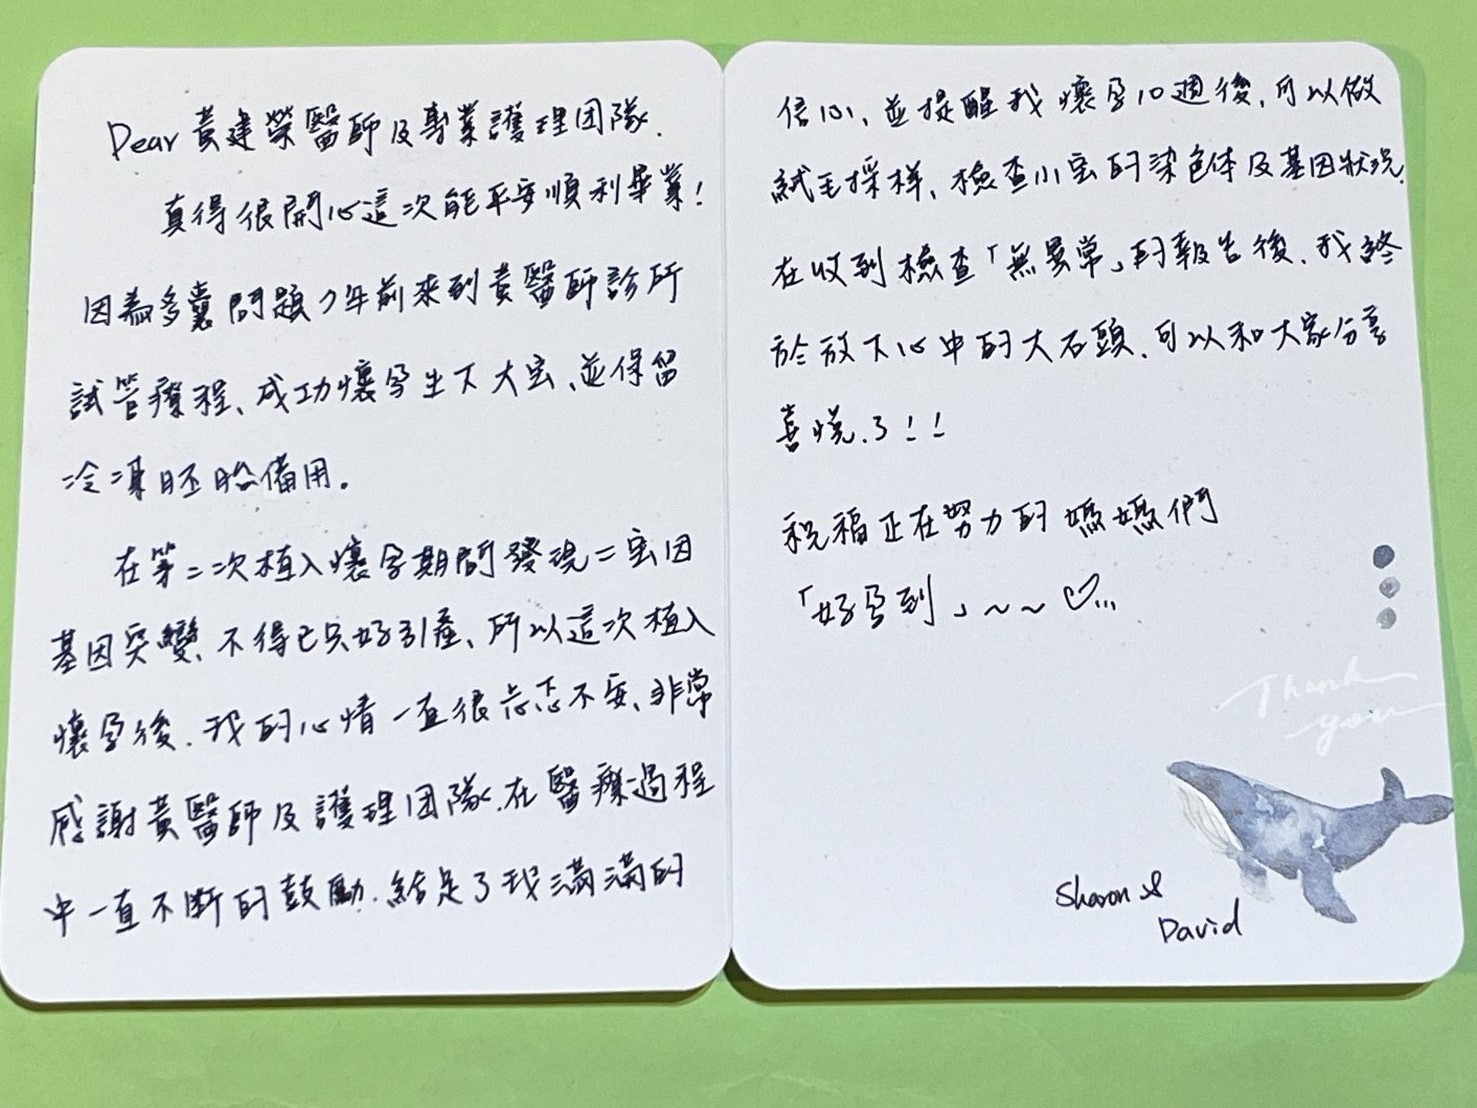 Dear 黃建榮醫師及專業護理团隊.
真得很開心這次能平安順利畢業!
因為多囊問題7年前來到黃醫師診所
試管療程、成功懷孕生下大宝、並保留
冷凍胚胎備用。
在第二次植入懷孕期間發現二宝因
基因突變、不得已只好引產、所以這次植入
懷孕後.我的心情一直很忐忑不安、非常
感謝黃醫師及護理团隊.在醫療過程
中一直不斷的鼓勵.給足了我滿滿的
信心、並提醒我懷孕10週後.可以做
絨毛採樣、檢查小宝的染色体及基因狀況.
在收到檢查「無異常」的報告後.我終
於放下心中的大石頭.可以和大家分享
喜悅了!!
祝福正在努力的媽媽們
「好孕到」~~♡...
Thank
you
Sharon &
David